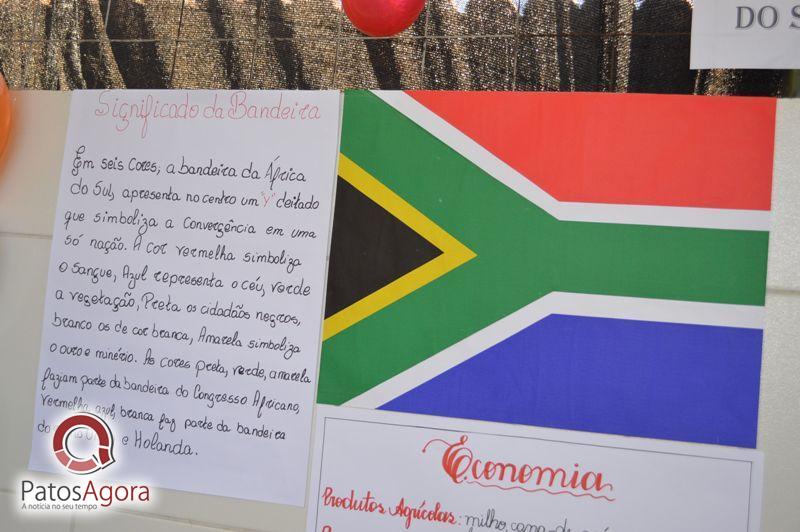 DO S
Significado da Bandeira
Em seis Cores, a bandeira da África
do Sul, apresenta no centro um "Y" deitado
que simboliza a Convergência em uma
só nação. A cor vermelha simboliza
o sangue, Azul representa o céu, verde
a vegetação, Preta os cidadãos negros,
branco os de cor branca, Amarela simboliza
o ouro e minério. As cores preta, verde, amarela
faziam parte da bandeira do Congresso Africano,
vermelha, azul, branca faz parte da bandeira
e Holanda.
Economia
Produtos Agrícolas: milho, cana-de
PatosAgora
A notícia no seu tempo